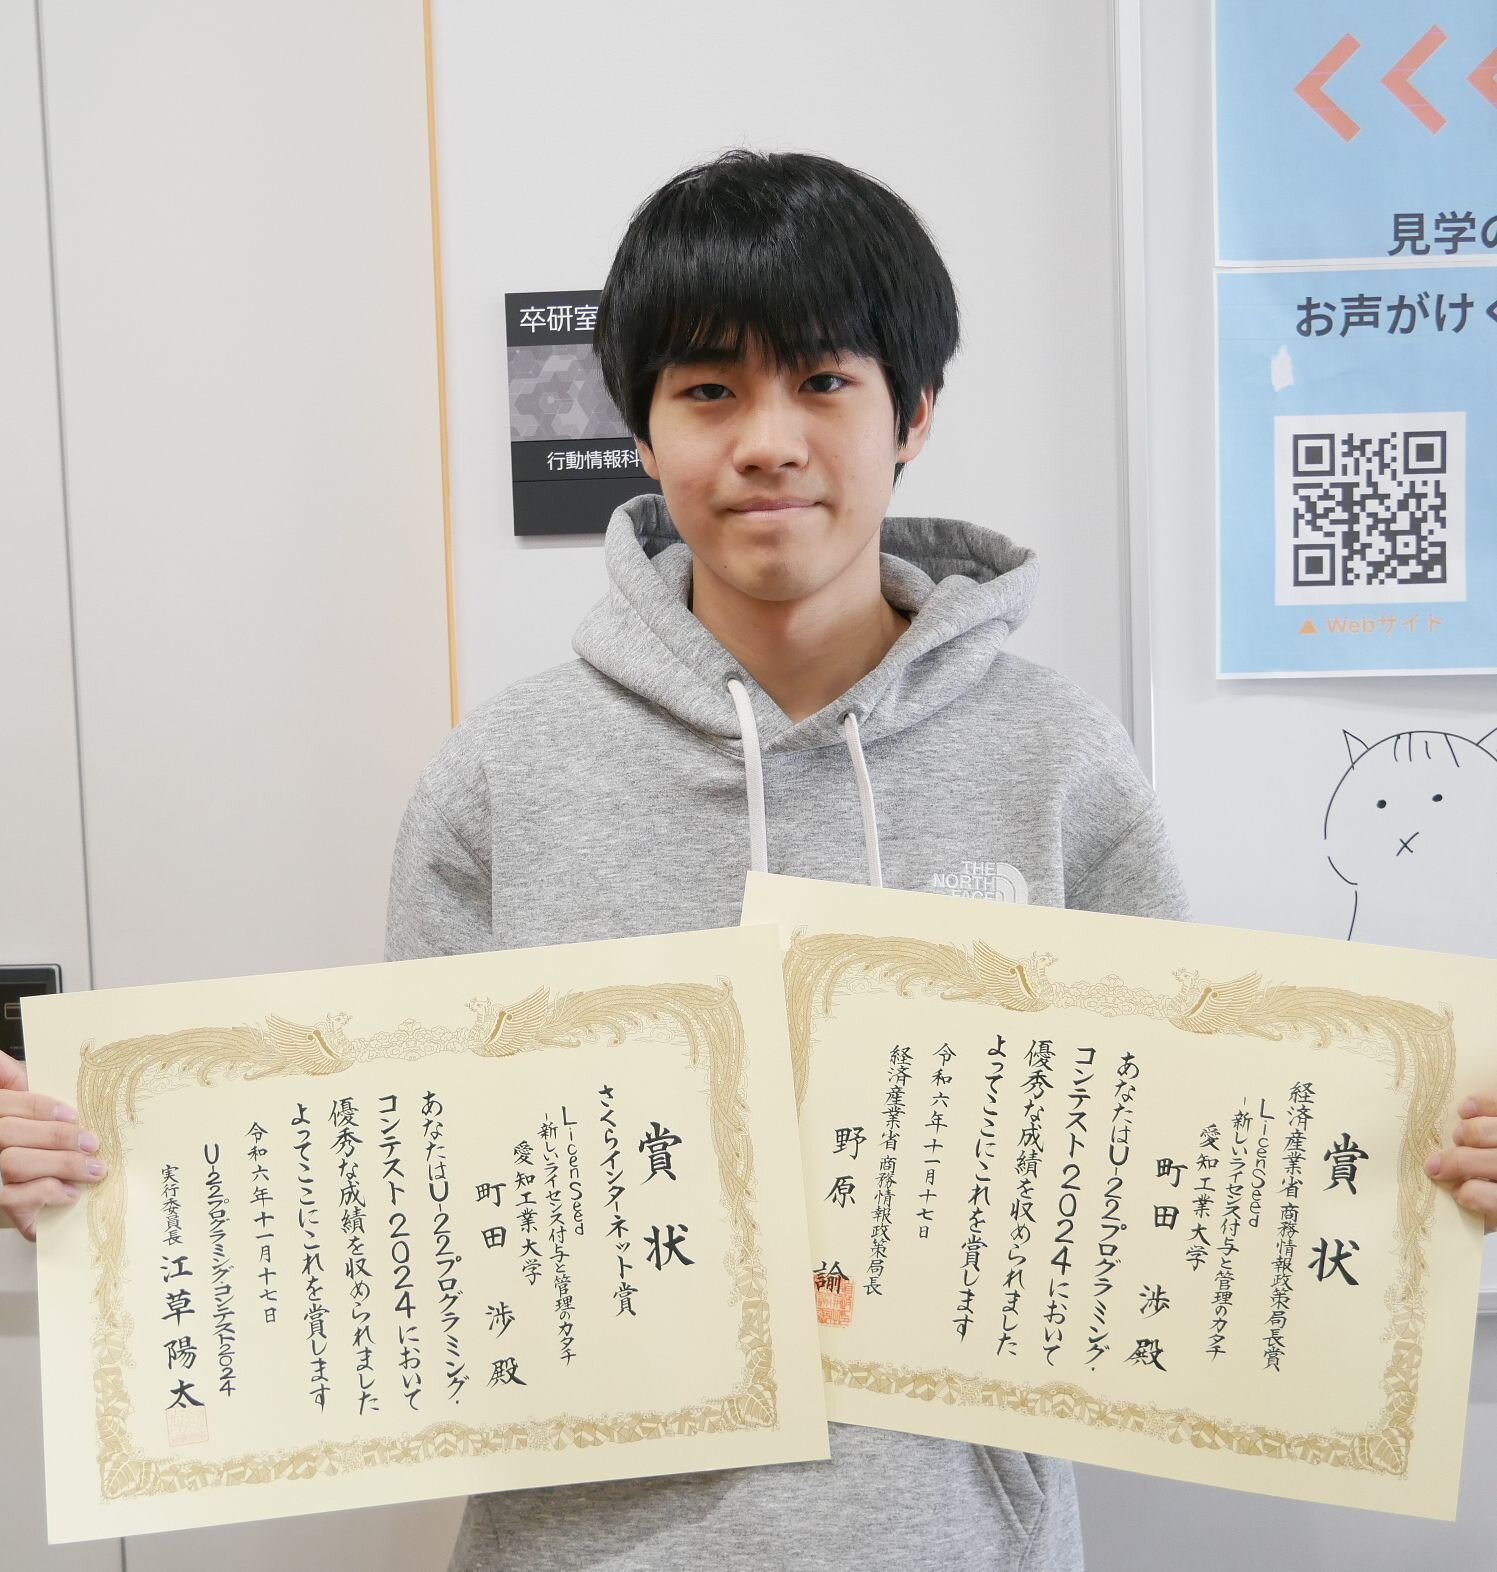 見学の
お声がけく
▲ Webサイト
卒研室
行動情報科
THE
NORTH
FACE
賞状
さくらインターネット賞
LicenSeed
-新しいライセンス付与と管理のカタチ
愛知工業大学
町田 渉 殿
あなたはU-22プログラミング・
コンテスト2024において
優秀な成績を収められました
よってここにこれを賞します
令和六年十一月十七日
U-22プログラミング・コンテスト2024
実行委員長 江草陽太
賞状
経済産業省 商務情報政策局長賞
LicenSeed
-新しいライセンス付与と管理のカタチ
愛知工業大学
町田 渉 殿
あなたはU-22プログラミング・
コンテスト2024において
優秀な成績を収められました
よってここにこれを賞します
令和六年十一月十七日
経済産業省 商務情報政策局長
野原 諭